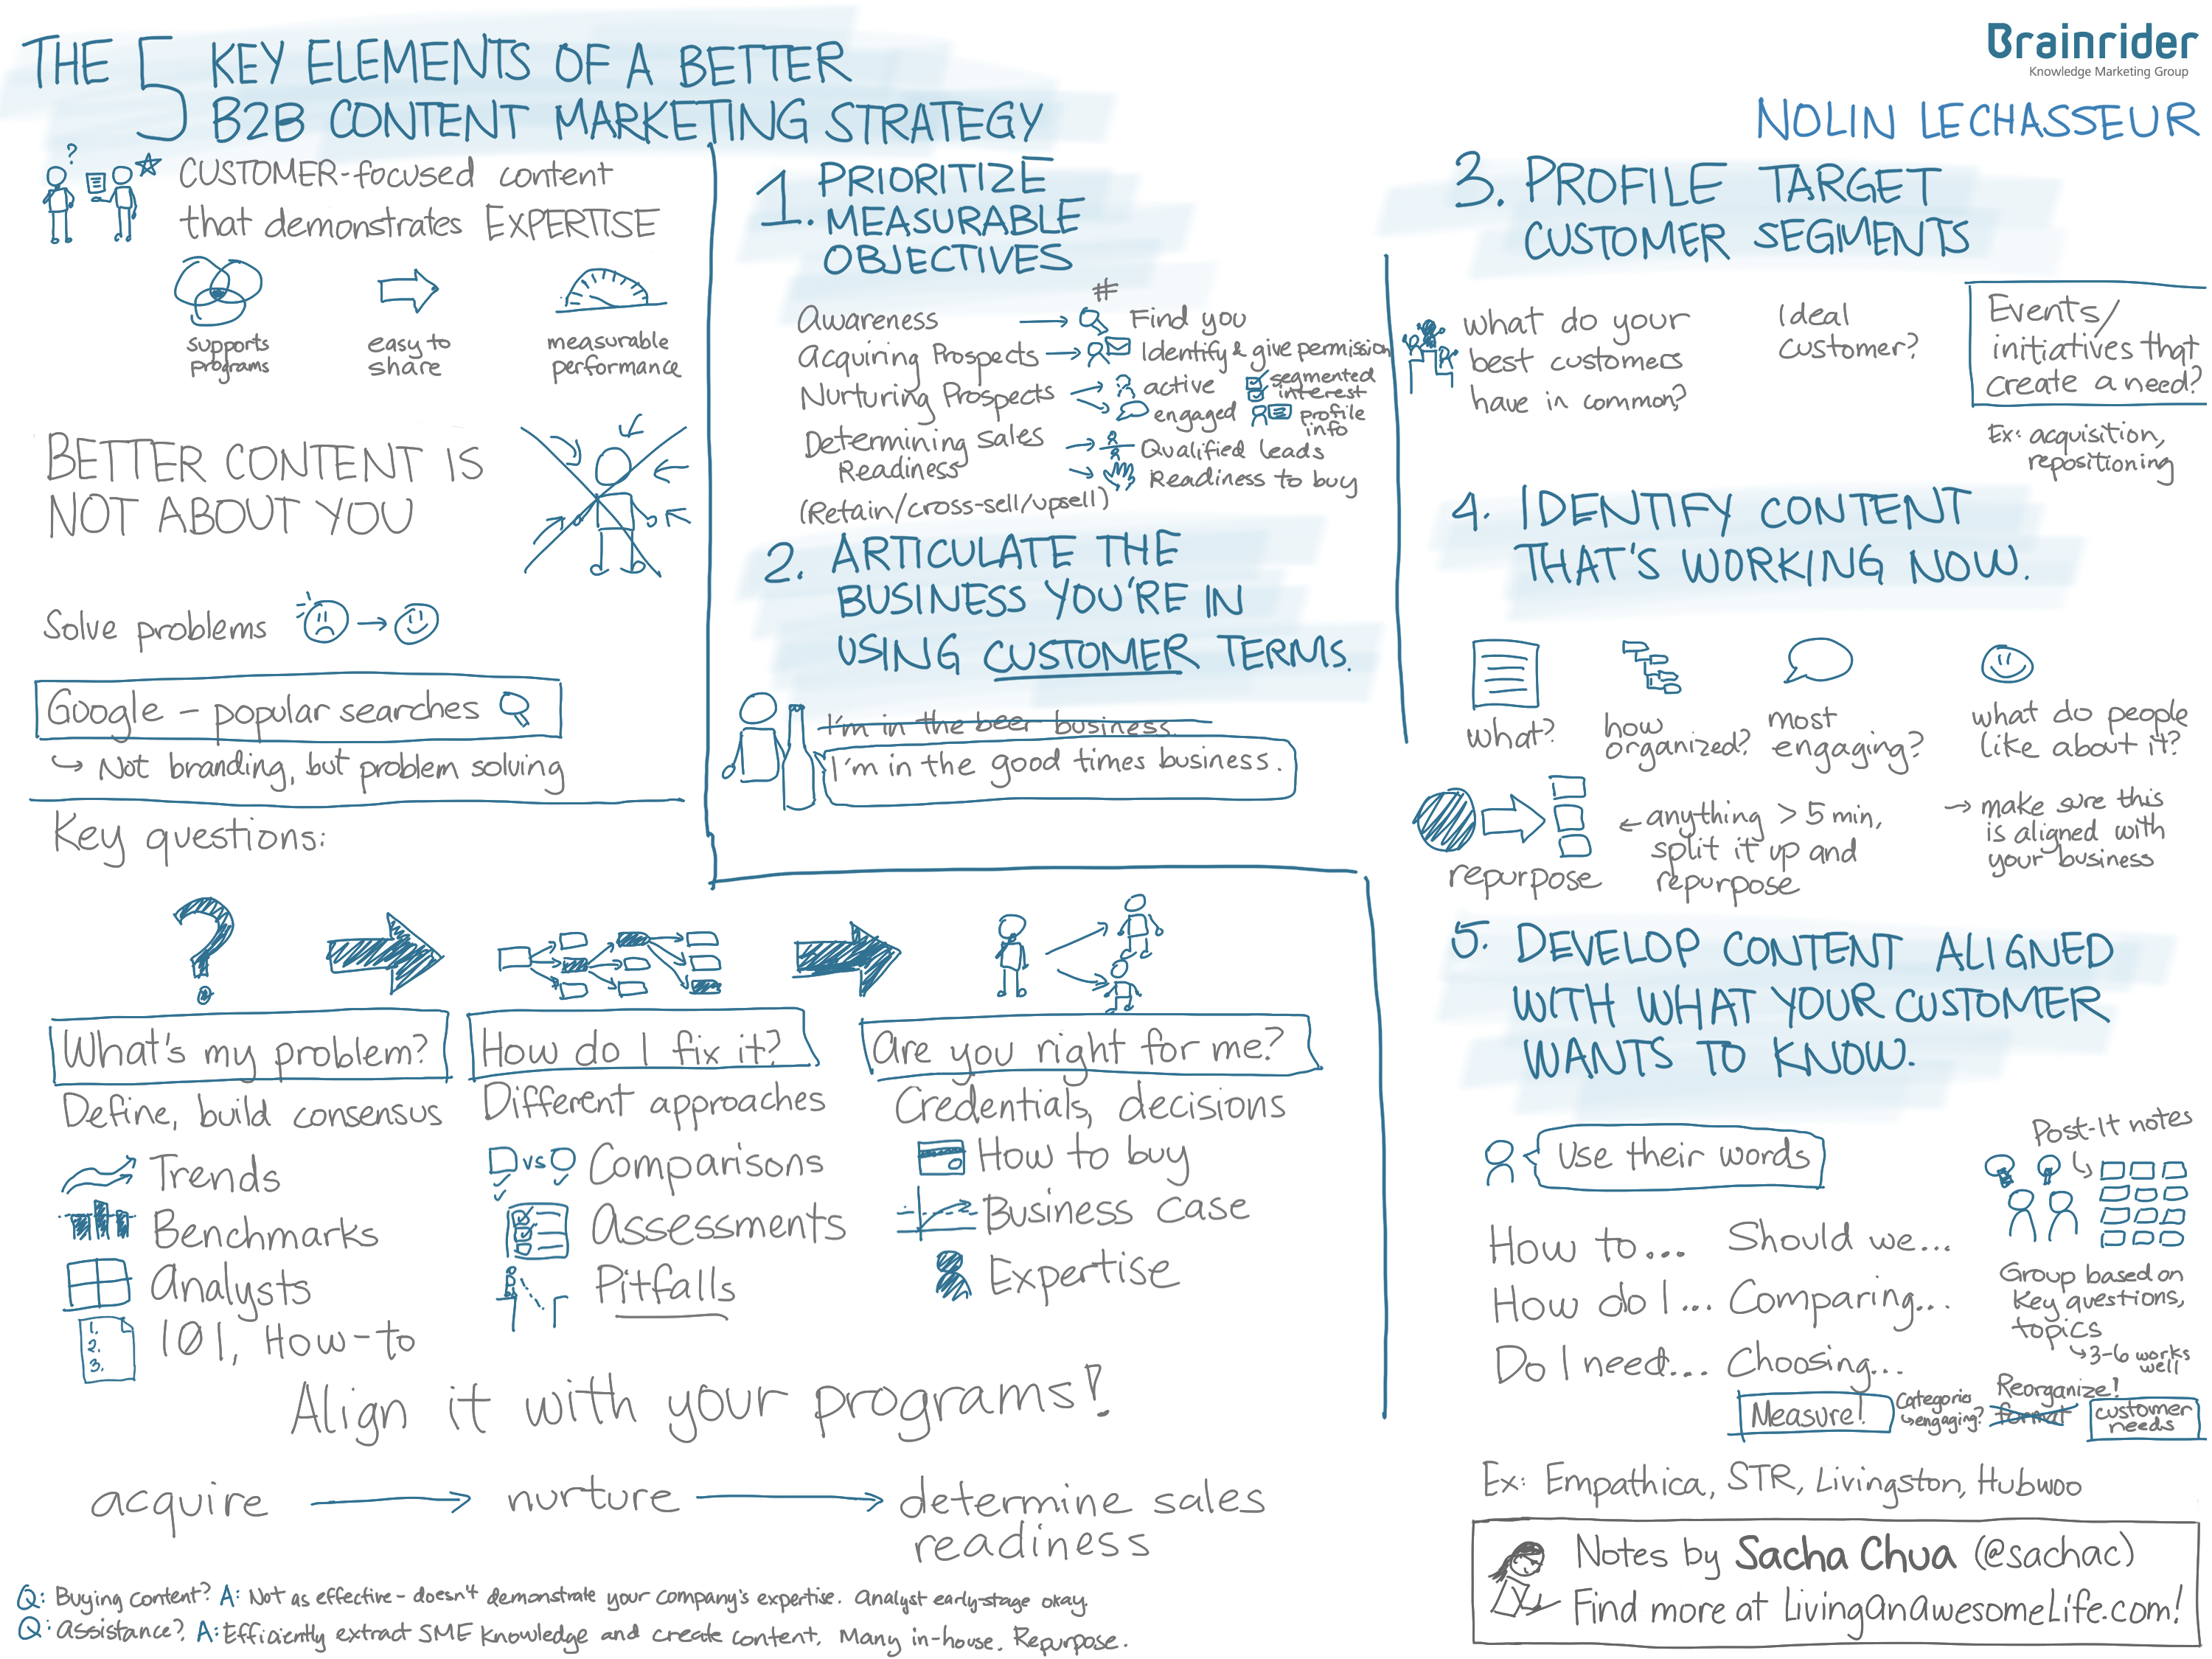 THE 5 KEY ELEMENTS OF A BETTER
B2B CONTENT MARKETING STRATEGY
Brainrider
Knowledge Marketing Group
NOLIN LECHASSEUR
?
CUSTOMER-focused content
that demonstrates EXPERTISE
supports
programs
easy to
share
measurable
performance
BETTER CONTENT IS
NOT ABOUT YOU
Solve problems
Google - popular searches
Not branding, but problem solving
Key questions:
?
What's my problem?
Define, build consensus
Trends
Benchmarks
Analysts
1.
2.
3.
101, How-to
How do I fix it?
Different approaches
vs
Comparisons
Assessments
Pitfalls
Are you right for me?
Credentials, decisions
How to buy
Business case
Expertise
Align it with your programs!
acquire
nurture
determine sales
readiness
Q: Buying content? A: Not as effective - doesn't demonstrate your company's expertise. Analyst early-stage okay.
Q: Assistance? A: Efficiently extract SME knowledge and create content. Many in-house. Repurpose.
1. PRIORITIZE
MEASURABLE
OBJECTIVES
#
Awareness → Find you
Acquiring Prospects → Identify & give permission
Nurturing Prospects → active segmented
interest
→ engaged profile
info
Determining Sales → Qualified leads
Readiness → Readiness to buy
(Retain/cross-sell/upsell)
2. ARTICULATE THE
BUSINESS YOU'RE IN
USING CUSTOMER TERMS.
I'm in the beer business.
I'm in the good times business.
3. PROFILE TARGET
CUSTOMER SEGMENTS
What do your
best customers
have in common?
Ideal
customer?
Events/
initiatives that
create a need?
Ex: acquisition,
repositioning
4. IDENTIFY CONTENT
THAT'S WORKING NOW.
what?
how
organized?
most
engaging?
what do people
like about it?
repurpose
← anything > 5 min,
split it up and
repurpose
→ make sure this
is aligned with
your business
5. DEVELOP CONTENT ALIGNED
WITH WHAT YOUR CUSTOMER
WANTS TO KNOW.
Use their words
How to... Should we...
How do I... Comparing...
Do I need... Choosing...
Post-It notes
Group based on
key questions,
topics
3-6 works
well
Measure!
Categories
engaging?
Reorganize!
format
customer
needs
Ex: Empathica, STR, Livingston, Hubwoo
Notes by Sacha Chua (@sachac)
Find more at LivingAnAwesomeLife.com!